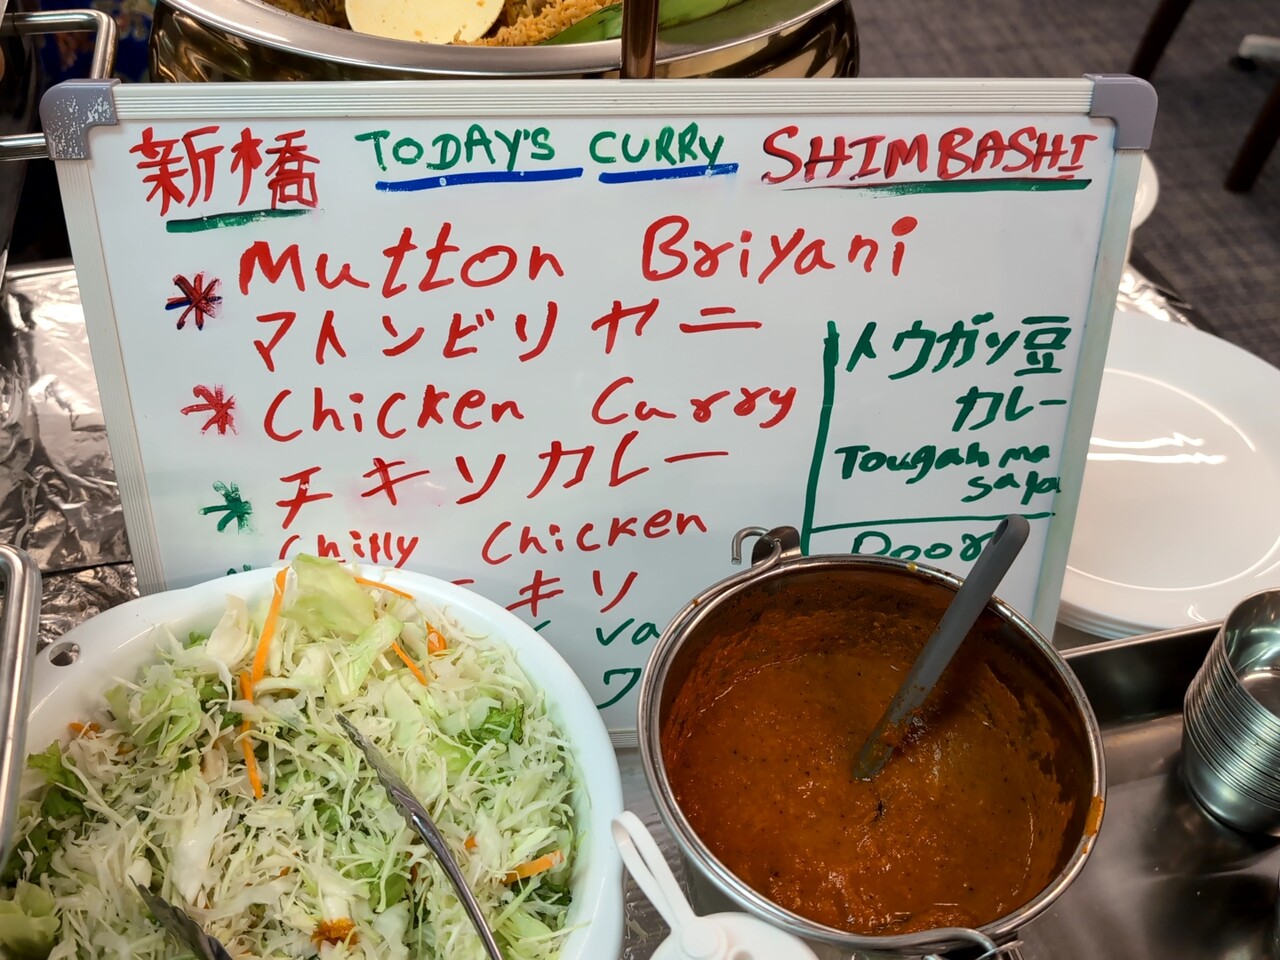 新橋 TODAY'S CURRY SHIMBASHI
* Mutton Briyani
マトンビリヤニ
* Chicken Curry
チキソカレー
* Chilly Chicken
キソ
va
ワ
トウガソ豆
カレー
Tougah ma
Door